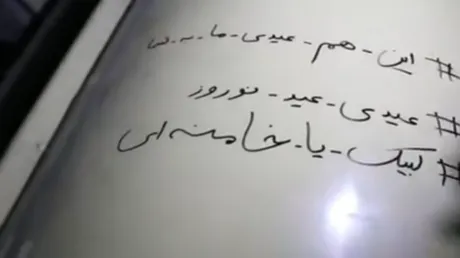 #این_هم_عیدی_ما_به
#عیدی_عید_نوروز
#لبیک_یا_خامنه‌ای